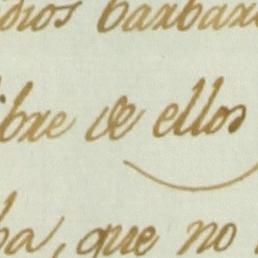 dios barbar
ibre de ellos
ba, que no